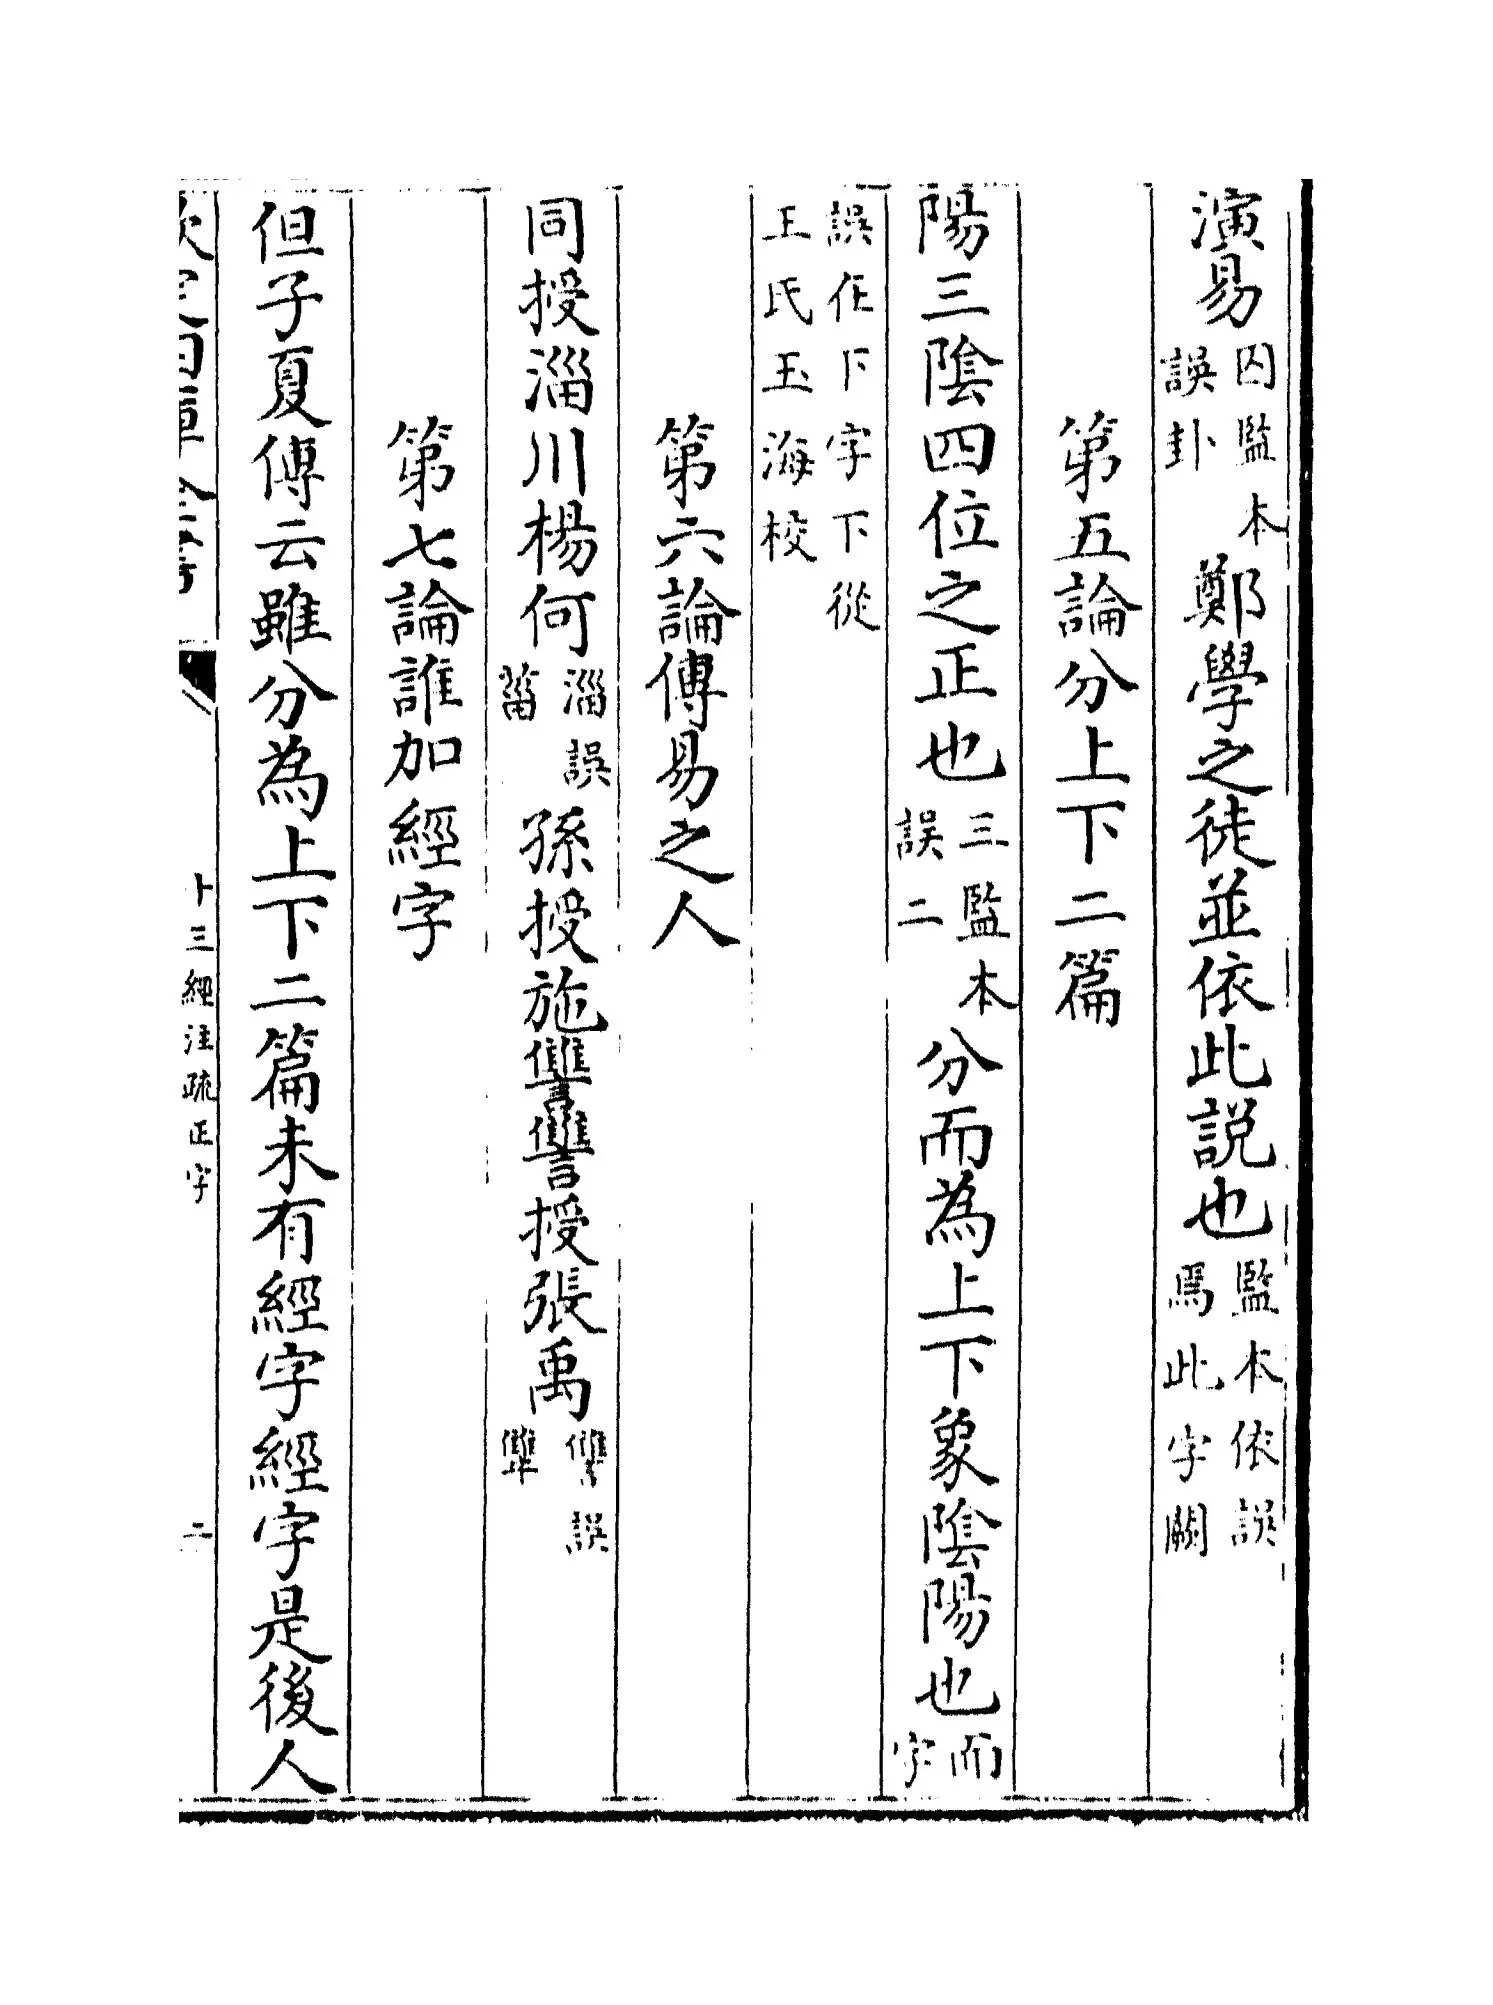 演易囚監本誤卦鄭學之徒並依此説也監本依誤焉此字闕
第五論分上下二篇
陽三陰四位之正也三監本誤二分而為上下象陰陽也而字
誤在下字下從王氏玉海校
第六論傳易之人
同授淄川楊何淄誤菑孫授施讐讐授張禹讐誤犨
第七論誰加經字
但子夏傳云雖分為上下二篇未有經字經字是後人
欽定四庫全書
十三經注疏正字
二